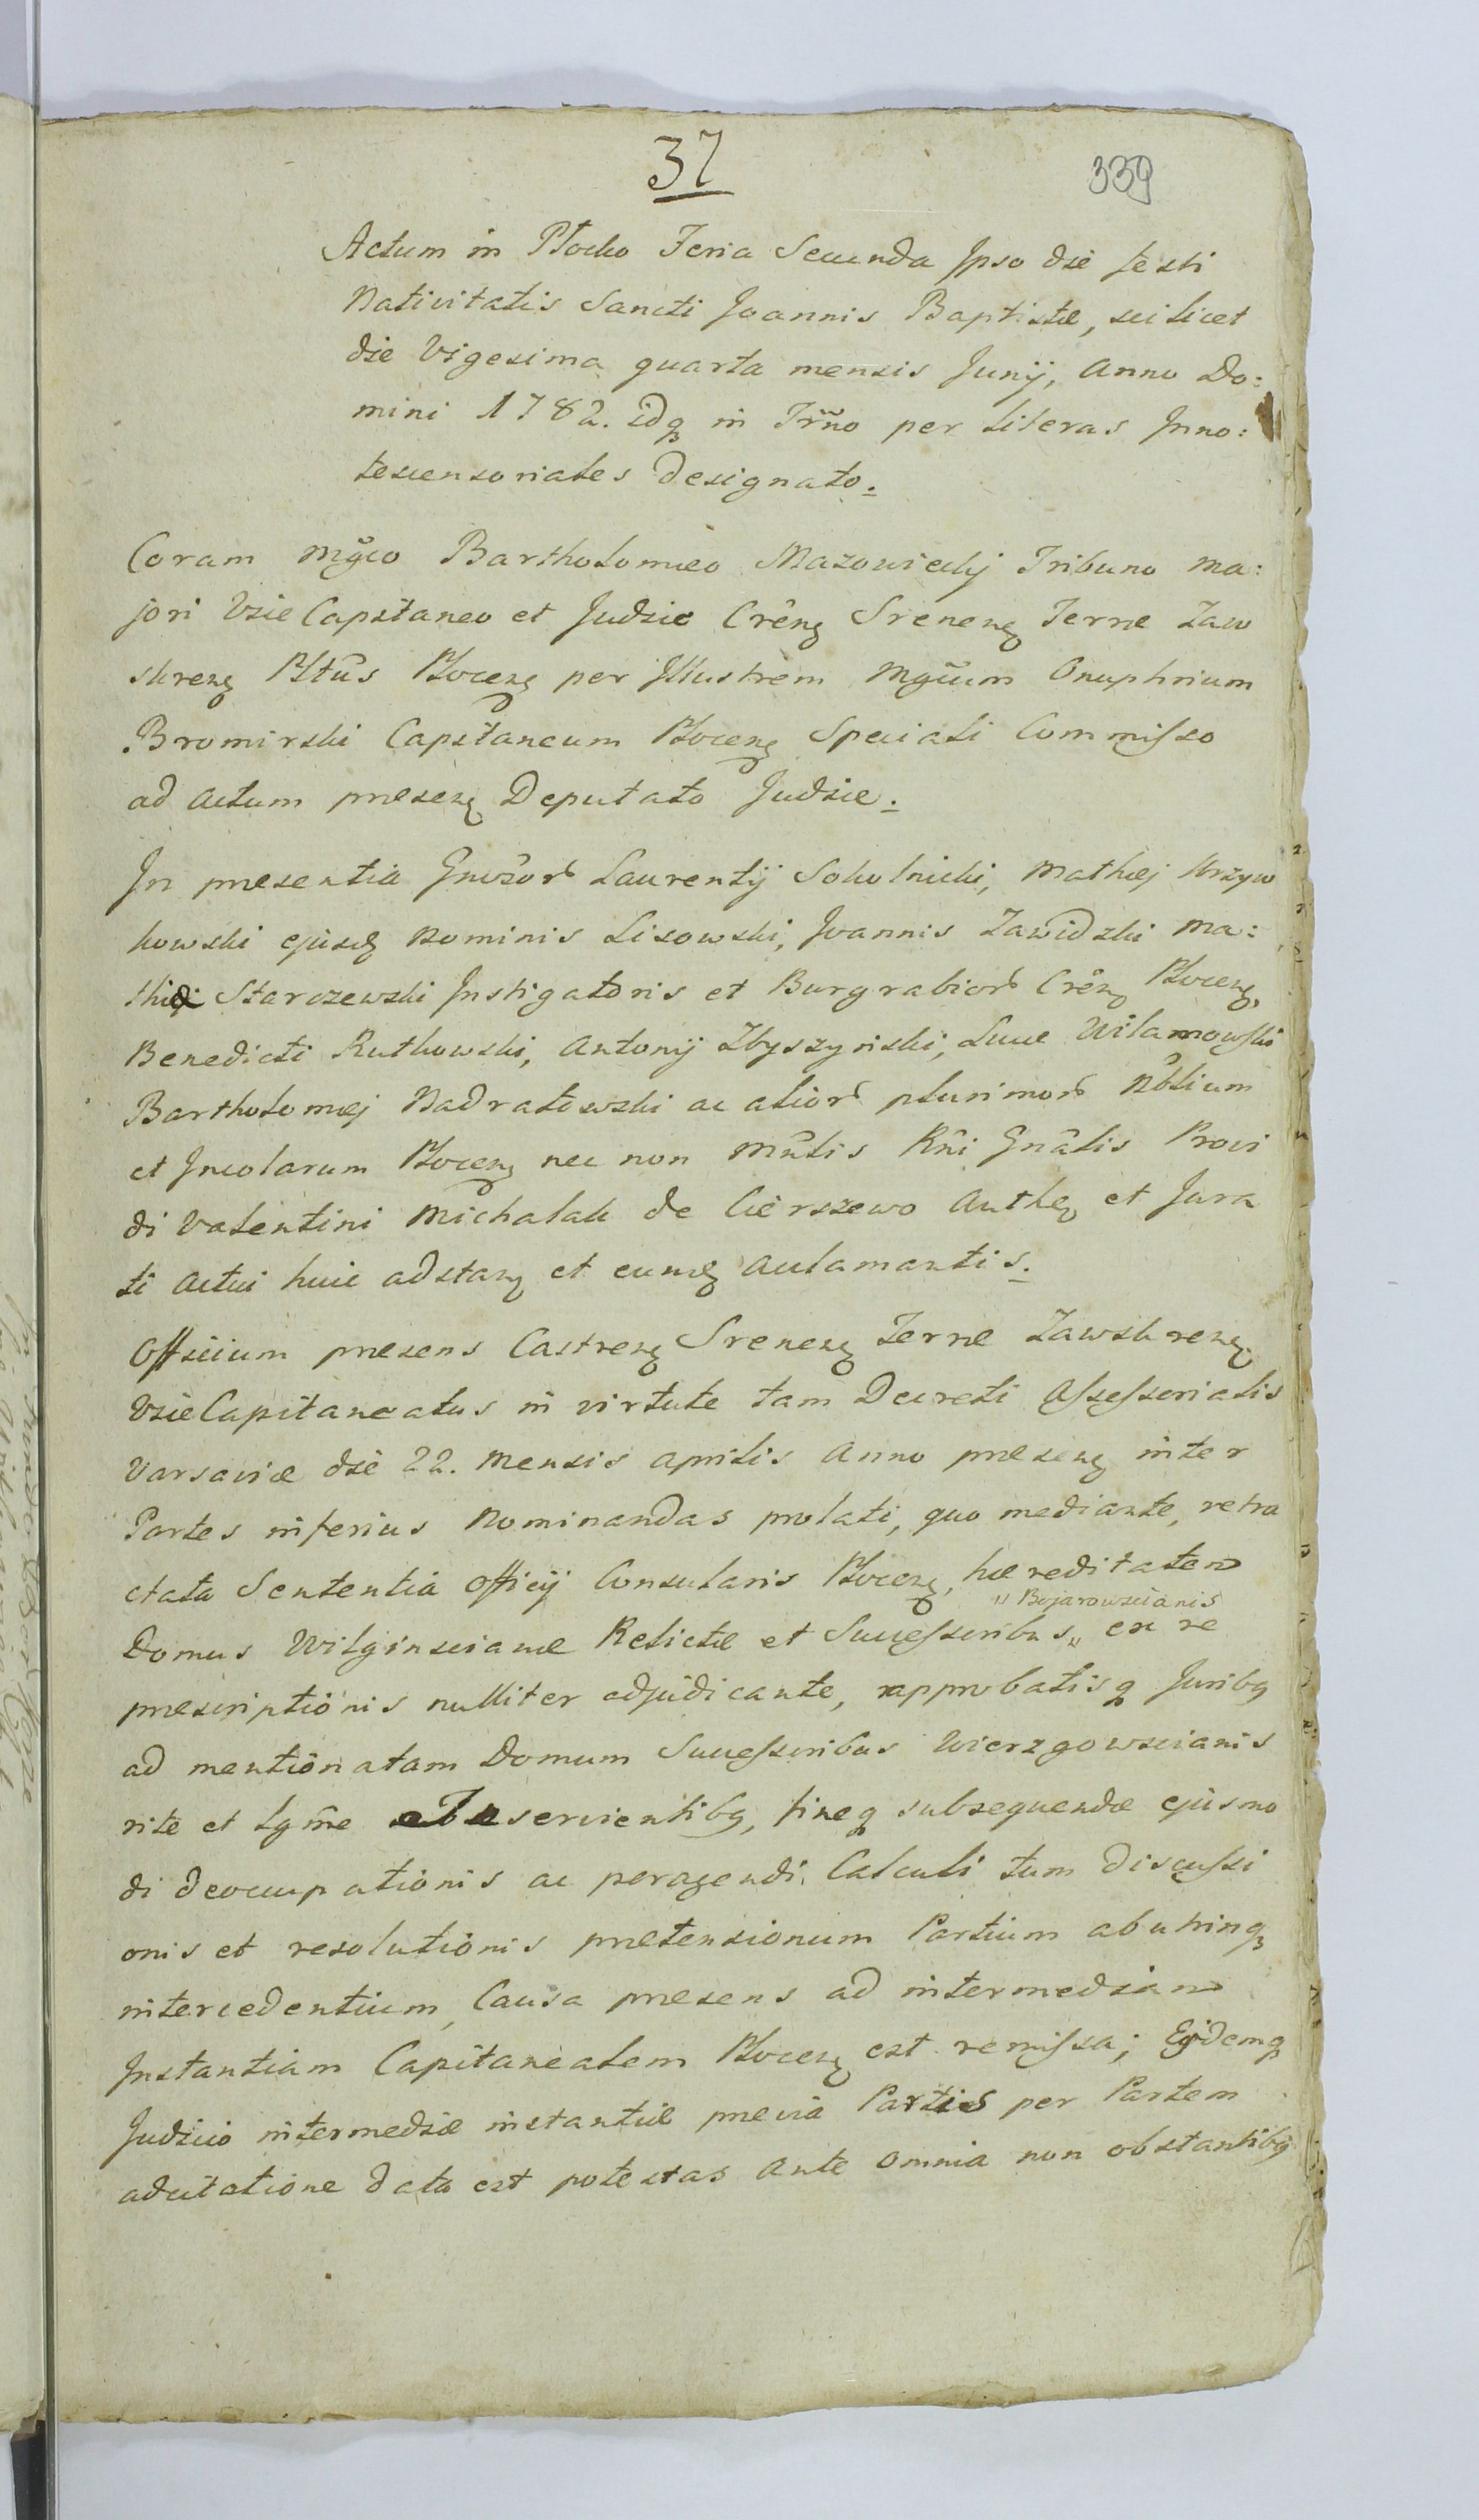 37
339
Actum in Płocko Feria Secunda Ipso die festi
Nativitatis Sancti Joannis Baptistæ, scilicet
die Vigesima quarta mensis Junij, Anno Do:
mini 1782. idq in Trm̃no per Literas Inno:
tescensoriales designato.
Coram Mgco Bartholomæo Mazowiecki Tribuno Ma:
jori Vice Capitaneo et Judice Crên Srenen Terræ Zaw
skren Pltûs Plocen per Illustrem Mgcum Onuphrium
Bromirski Capitaneum Plocen Speciali Commisso
ad Actum præsen Deputato Judice.
In præsentia Gnrosor Laurentij Sokolnicki, Mathæj Krzyw
kowski ejusd Nominis Lisowski, Joannis Zawidzki Ma:
thiæ Starczewski Instigatoris et Burgrabior Crên Plocen,
Benedicti Rutkowski, Antonij Zbyszyński, Lucæ Wilamowski
Bartholomæj Nadratowski ac alior plurimor Nblium
et Incolarum Plocen nec non Mnlis Rni Gnâlis Provi
di Valentini Michalak de Cierszewo Authen et Jura
ti Actui huic adstan et eumd Aclamantis.
Officium præsens Castren Srenen Terræ Zawskren
Vice Capitaneatus in virtute tam Decreti Assessorialis
Varsaviæ die 22. Mensis Aprilis Anno præsen inter
Partes inferius Nominandas prolati, quo mediante, retra
ctata Sententia Officij Consularis Plocen, hæreditatem
" Bojarowscianis
Domus Wilginscianæ Relictæ et Successoribus " ex re
præscriptionis nulliter adjudicante, approbatisq Juribq
ad mentionatam Domum Successoribus Wierzgowscianis
rite et Lgme servientibq, fineq subsequendæ ejusmo
di deoccupationis ac peragendi Calculi tum discussi
onis et resolutionis prætensionum Partium abutrinq
intercedentium, Causa præsens ad intermediam
Instantiam Capitanealem Plocen est remissa; Eidemq
Judicio intermediæ instantiæ prævia Partis per Partem
adcitatione data est potestas Ante omnia non obstantibq